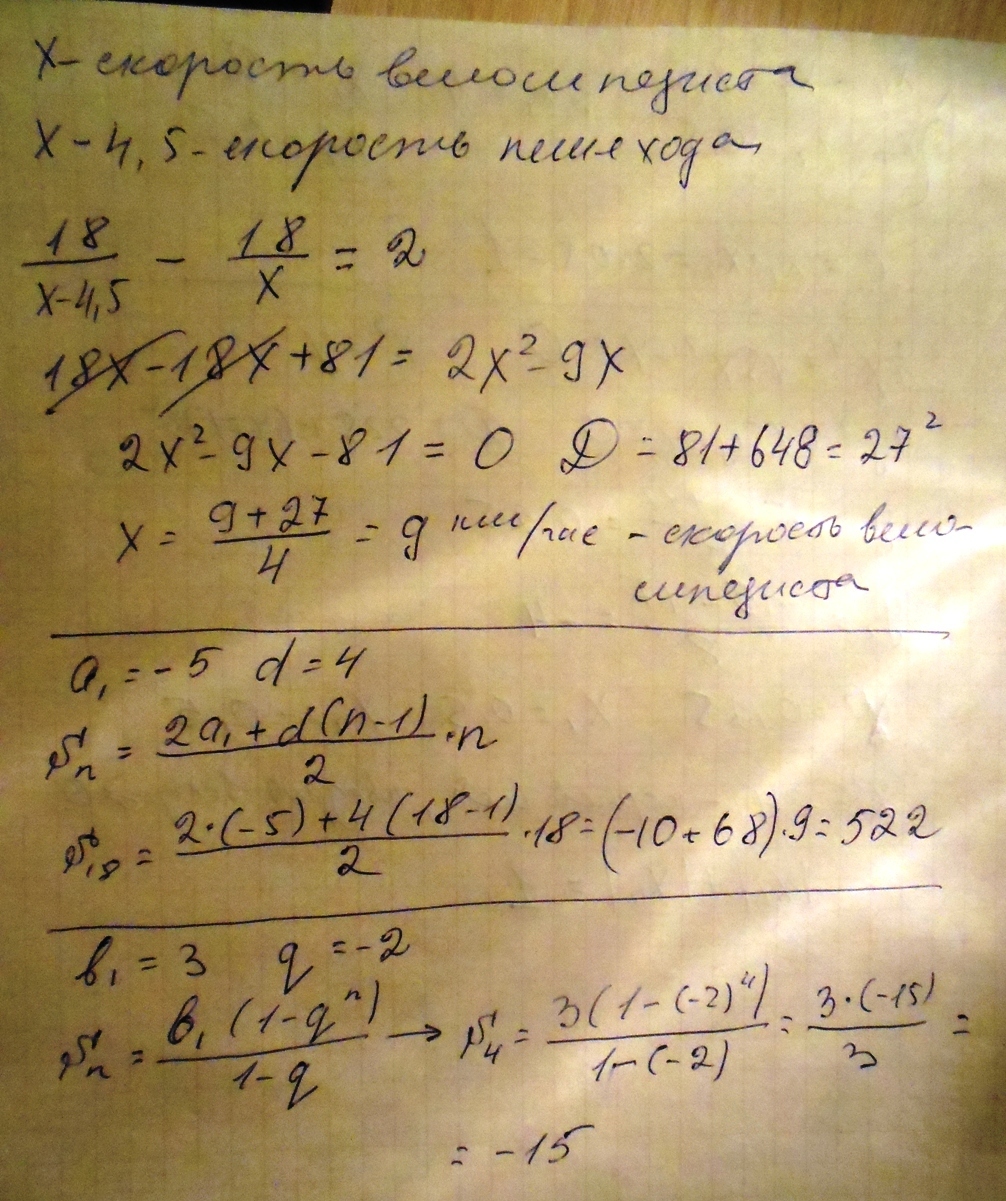 x - скорость велосипедиста
x - 4,5 - скорость пешехода
18/(x-4,5) - 18/x = 2
18x - 18x + 81 = 2x² - 9x
2x² - 9x - 81 = 0 D = 81 + 648 = 27²
x = (9 + 27)/4 = 9 км/час - скорость вело-
сипедиста
a₁ = -5 d = 4
Sₙ = (2a₁ + d(n-1))/2 · n
S₁₈ = (2·(-5) + 4(18-1))/2 · 18 = (-10 + 68)·9 = 522
b₁ = 3 q = -2
Sₙ = b₁(1-qⁿ)/(1-q) → S₄ = 3(1-(-2)⁴)/(1-(-2)) = 3·(-15)/3 =
= -15